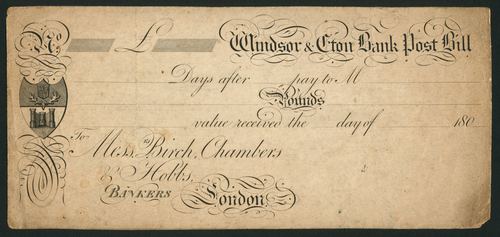 No £ Windsor & Eton Bank Post Bill
Days after pay to M
Pounds
value received the day of 180
To Messrs Birch, Chambers
& Hobbs,
BANKERS London